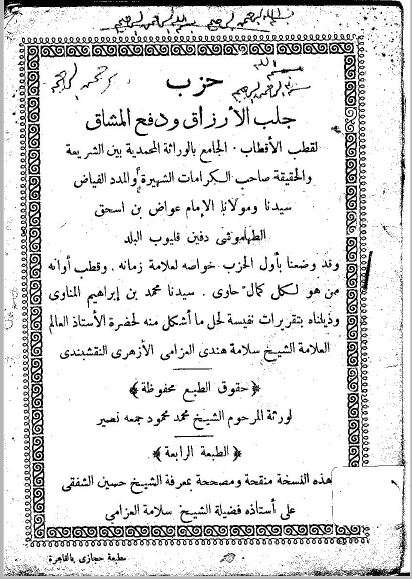 بسم الله الرحمن الرحيم بسم الله الرحمن الرحيم
بسم الله الرحمن الرحيم
حزب
جلب الأرزاق ودفع المشاق
لقطب الأقطاب . الجامع بالوراثة المحمدية بين الشريعة
والحقيقة صاحب الكرامات الشهيرة والمدد الفياض
سيدنا ومولانا الإمام عواض بن اسحق
الطهاموشي دفين قليوب البلد
وقد وضعنا بأول الحزب خواصه لعلامة زمانه . وقطب أوانه
من هو لكل كمال حاوى . سيدنا محمد بن إبراهيم المناوى
وذيلناه بتقريرات نفيسة لحل ما أشكل منه لحضرة الأستاذ العالم
العلامة الشيخ سلامة هندى العزامى الأزهرى النقشبندى
﴿ حقوق الطبع محفوظة ﴾
لورثة المرحوم الشيخ محمد محمود جمعه نصير
﴿ الطبعة الرابعة ﴾
هذه النسخة منقحة ومصححة بمعرفة الشيخ حسين الشفقى
على أستاذه فضيلة الشيخ سلامة العزامى
مطبعة حجازى بالقاهرة